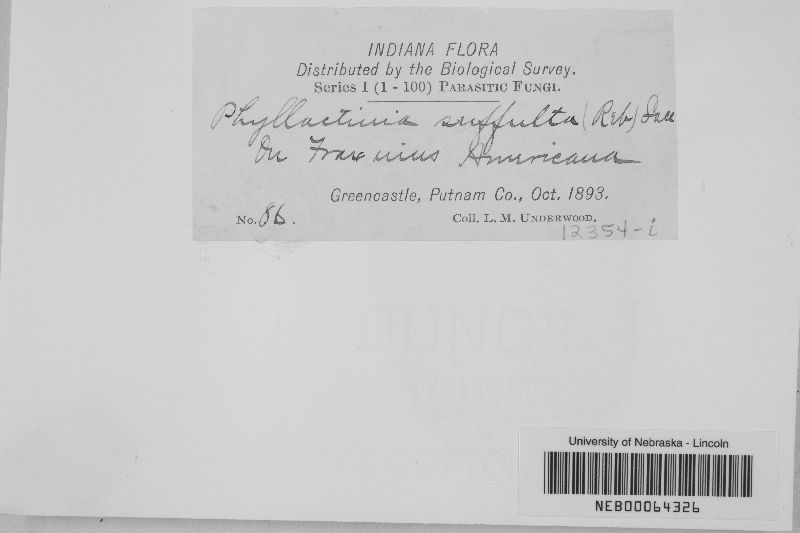 INDIANA FLORA
Distributed by the Biological Survey.
Series I (1 - 100) PARASITIC FUNGI.
Phyllactinia suffulta (Reb) Sacc
On Fraxinus Americana
Greencastle, Putnam Co., Oct. 1893.
No. 86.
Coll. L. M. UNDERWOOD.
12354-i
University of Nebraska - Lincoln
NEB00064326